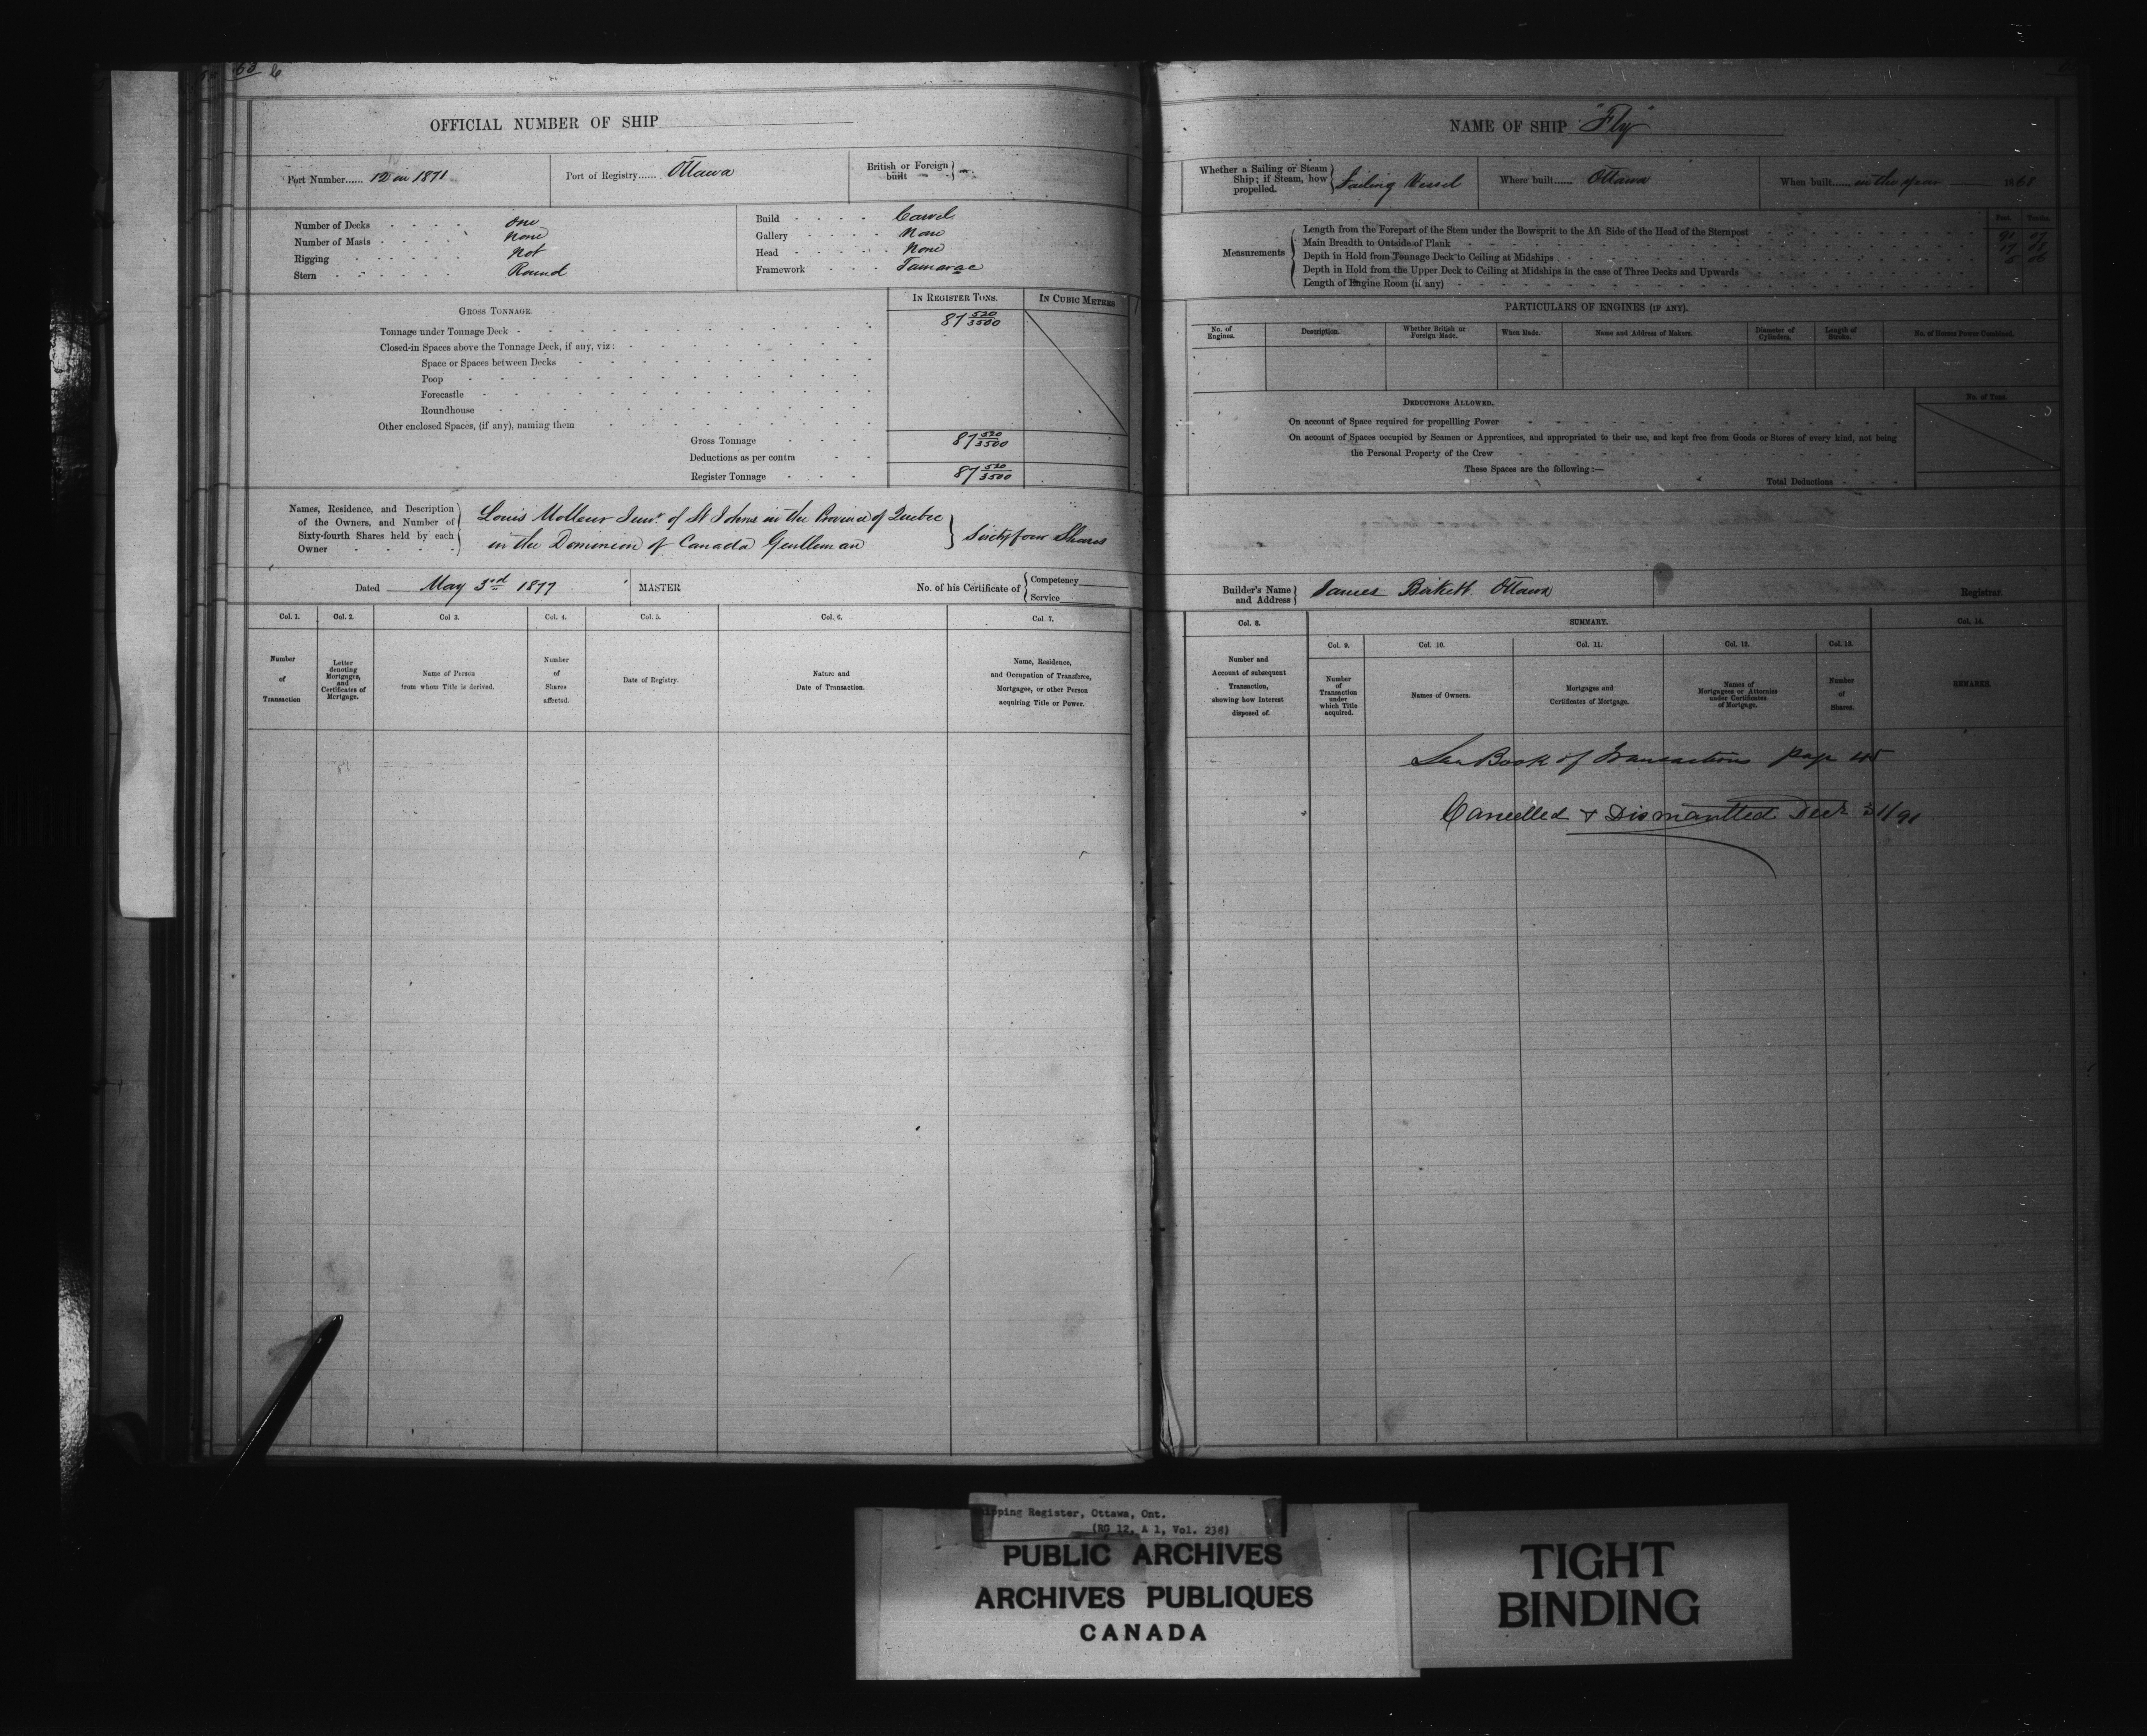 68
OFFICIAL NUMBER OF SHIP
Port Number...... 12 in 1871
Port of Registry...... Ottawa
British or Foreign built
Number of Decks - - - - One
Number of Masts - - - - None
Rigging - - - - Not
Stern - - - - Round
Build - - - - Carvel
Gallery - - - - None
Head - - - - None
Framework - - - Tamarac
GROSS TONNAGE.
IN REGISTER TONS.
IN CUBIC METRES
Tonnage under Tonnage Deck - 87 520/3500
Closed-in Spaces above the Tonnage Deck, if any, viz:
Space or Spaces between Decks
Poop
Forecastle
Roundhouse
Other enclosed Spaces, (if any), naming them
Gross Tonnage 87 520/3500
Deductions as per contra
Register Tonnage 87 520/3500
Names, Residence, and Description of the Owners, and Number of Sixty-fourth Shares held by each Owner
Louis Molleur Junr. of St Johns in the Province of Quebec
in the Dominion of Canada Gentleman } Sixty four Shares
Dated May 3rd 1877
MASTER
No. of his Certificate of { Competency
Service
Col. 1. Col. 2. Col 3. Col. 4. Col. 5. Col. 6. Col. 7.
Number of Transaction
Letter denoting Mortgages, and Certificates of Mortgage.
Name of Person from whom Title is derived.
Number of Shares affected.
Date of Registry.
Nature and Date of Transaction.
Name, Residence, and Occupation of Transferee, Mortgagee, or other Person acquiring Title or Power.
NAME OF SHIP "Fly"
Whether a Sailing or Steam Ship; if Steam, how propelled. } Sailing Vessel
Where built...... Ottawa
When built...... in the year 1868
Feet. Tenths.
Measurements
Length from the Forepart of the Stem under the Bowsprit to the Aft Side of the Head of the Sternpost
Main Breadth to Outside of Plank
Depth in Hold from Tonnage Deck to Ceiling at Midships
Depth in Hold from the Upper Deck to Ceiling at Midships in the case of Three Decks and Upwards
Length of Engine Room (if any)
PARTICULARS OF ENGINES (IF ANY).
No. of Engines.
Description.
Whether British or Foreign Made.
When Made.
Name and Address of Makers.
Diameter of Cylinders.
Length of Stroke.
No. of Horses Power Combined.
DEDUCTIONS ALLOWED.
No. of Tons.
On account of Space required for propellling Power
On account of Spaces occupied by Seamen or Apprentices, and appropriated to their use, and kept free from Goods or Stores of every kind, not being
the Personal Property of the Crew
These Spaces are the following:—
Total Deductions
Builder's Name and Address } James Birkett Ottawa
Registrar.
Col. 8. SUMMARY. Col. 14.
Col. 9. Col. 10. Col. 11. Col. 12. Col. 13.
Number and Account of subsequent Transaction, showing how Interest disposed of.
Number of Transaction under which Title acquired.
Names of Owners.
Mortgages and Certificates of Mortgage.
Names of Mortgagees or Attornies under Certificates of Mortgage.
Number of Shares.
REMARKS.
See Book of Transactions page
Cancelled & Dismantled Decr 31/91
Shipping Register, Ottawa, Ont.
(RG 12, A 1, Vol. 238)
PUBLIC ARCHIVES
ARCHIVES PUBLIQUES
CANADA
TIGHT
BINDING